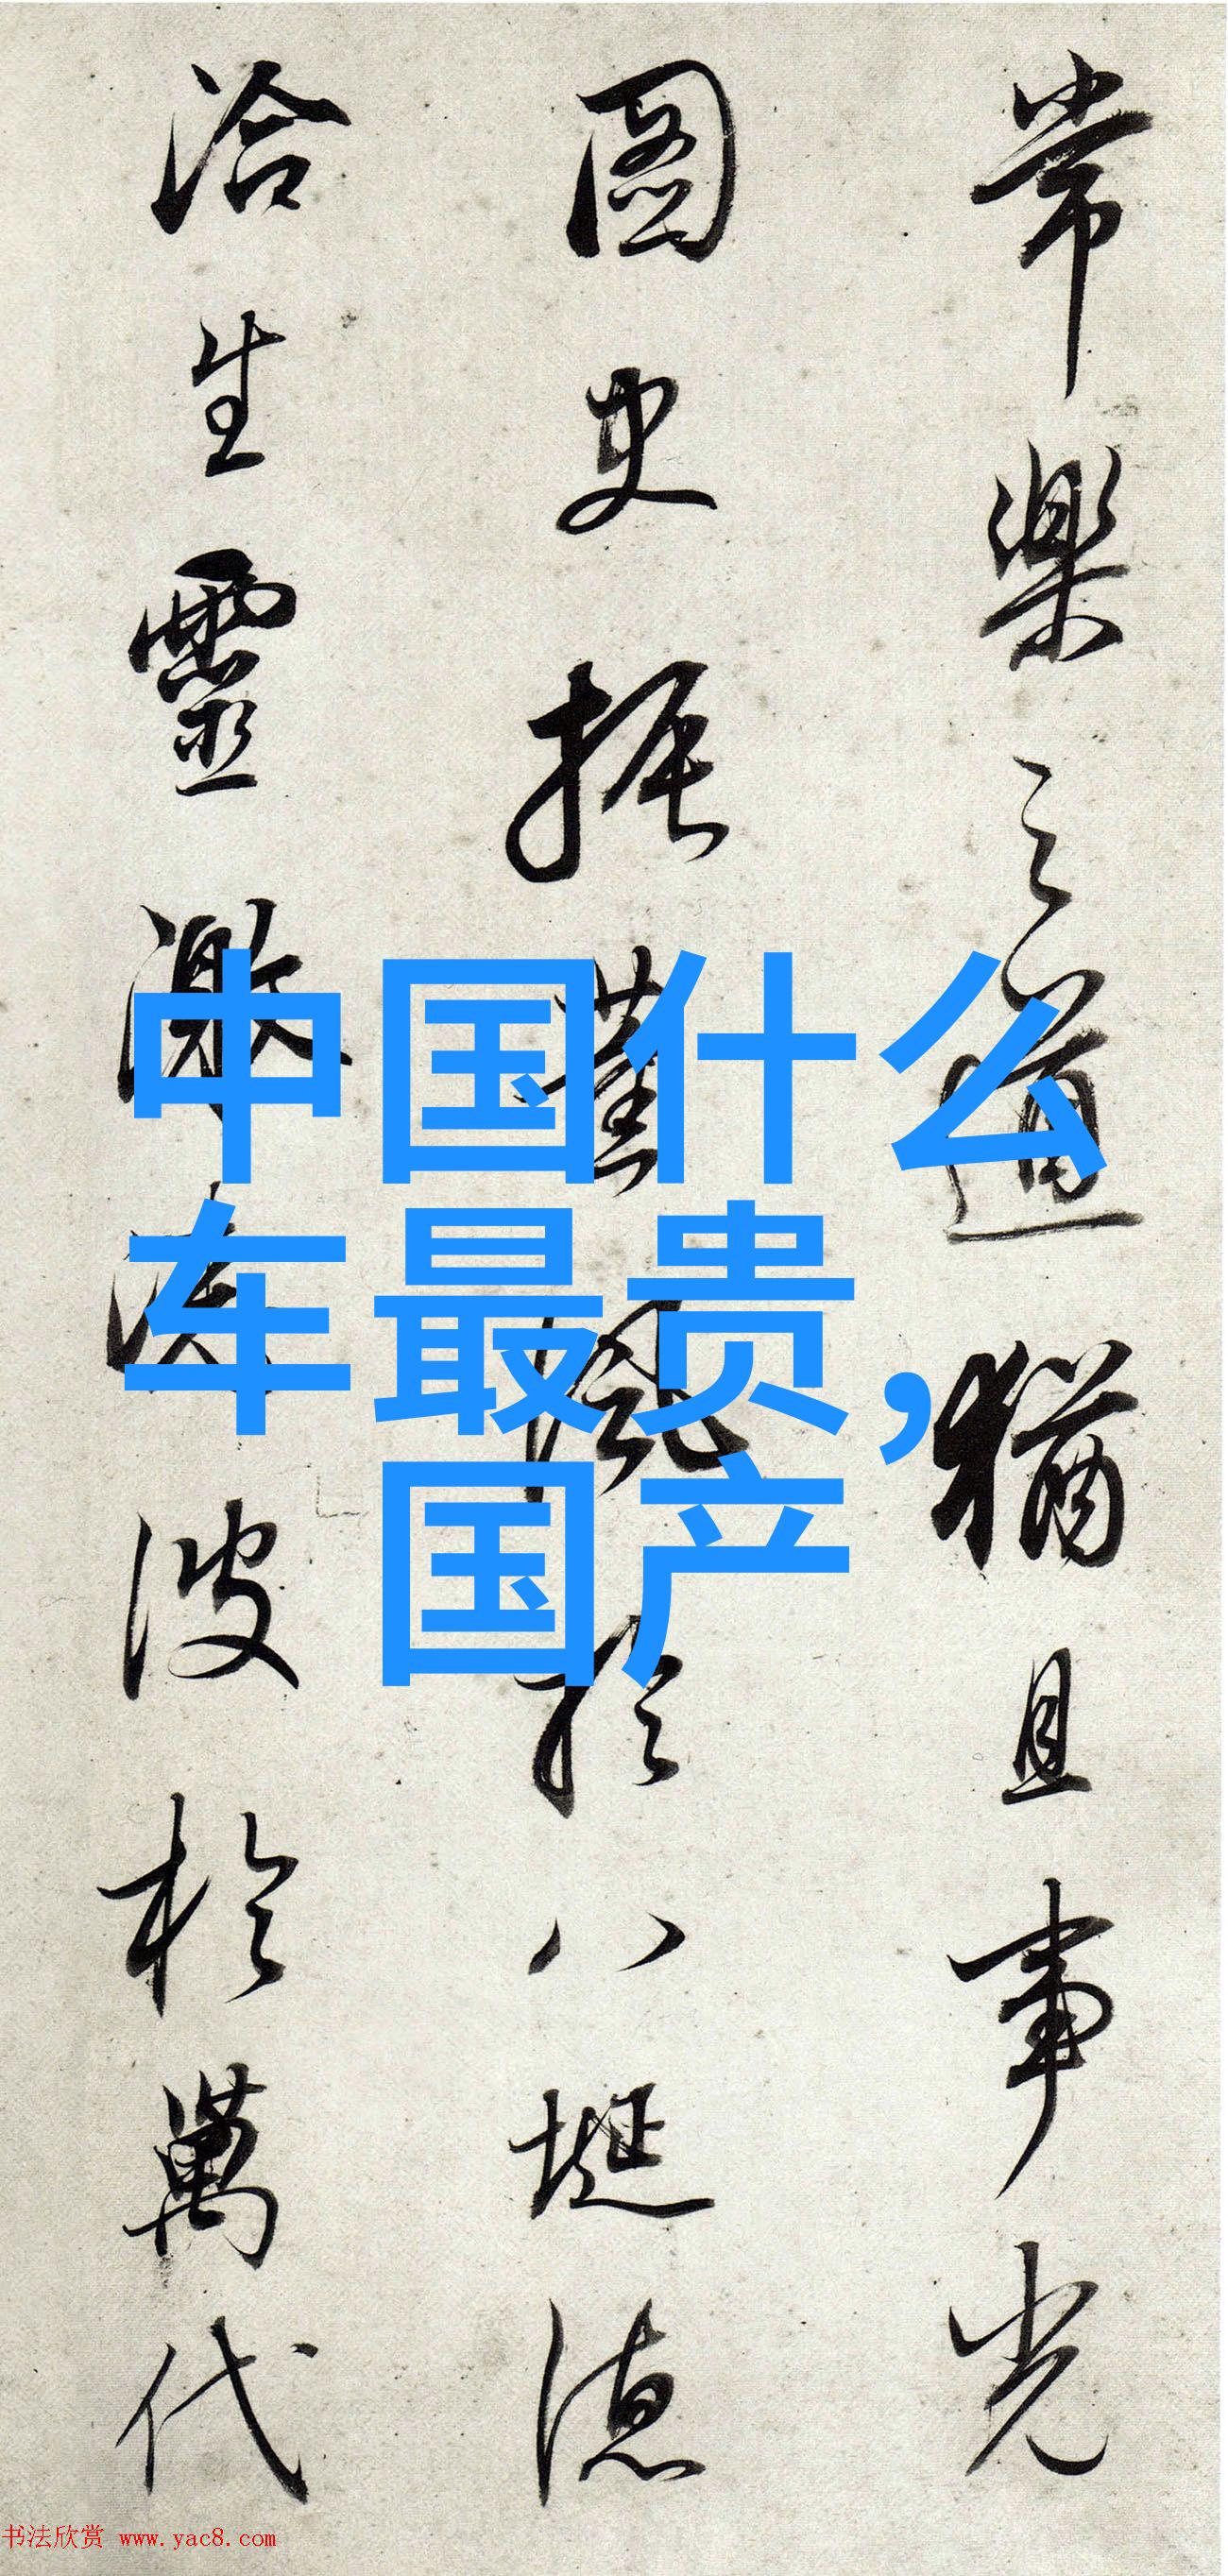 常樂之道猶且事光
圖史振薰風於八埏德
洽生靈激波於萬代
中国什么
车最贵，
国产
书法欣赏 www.yac8.com